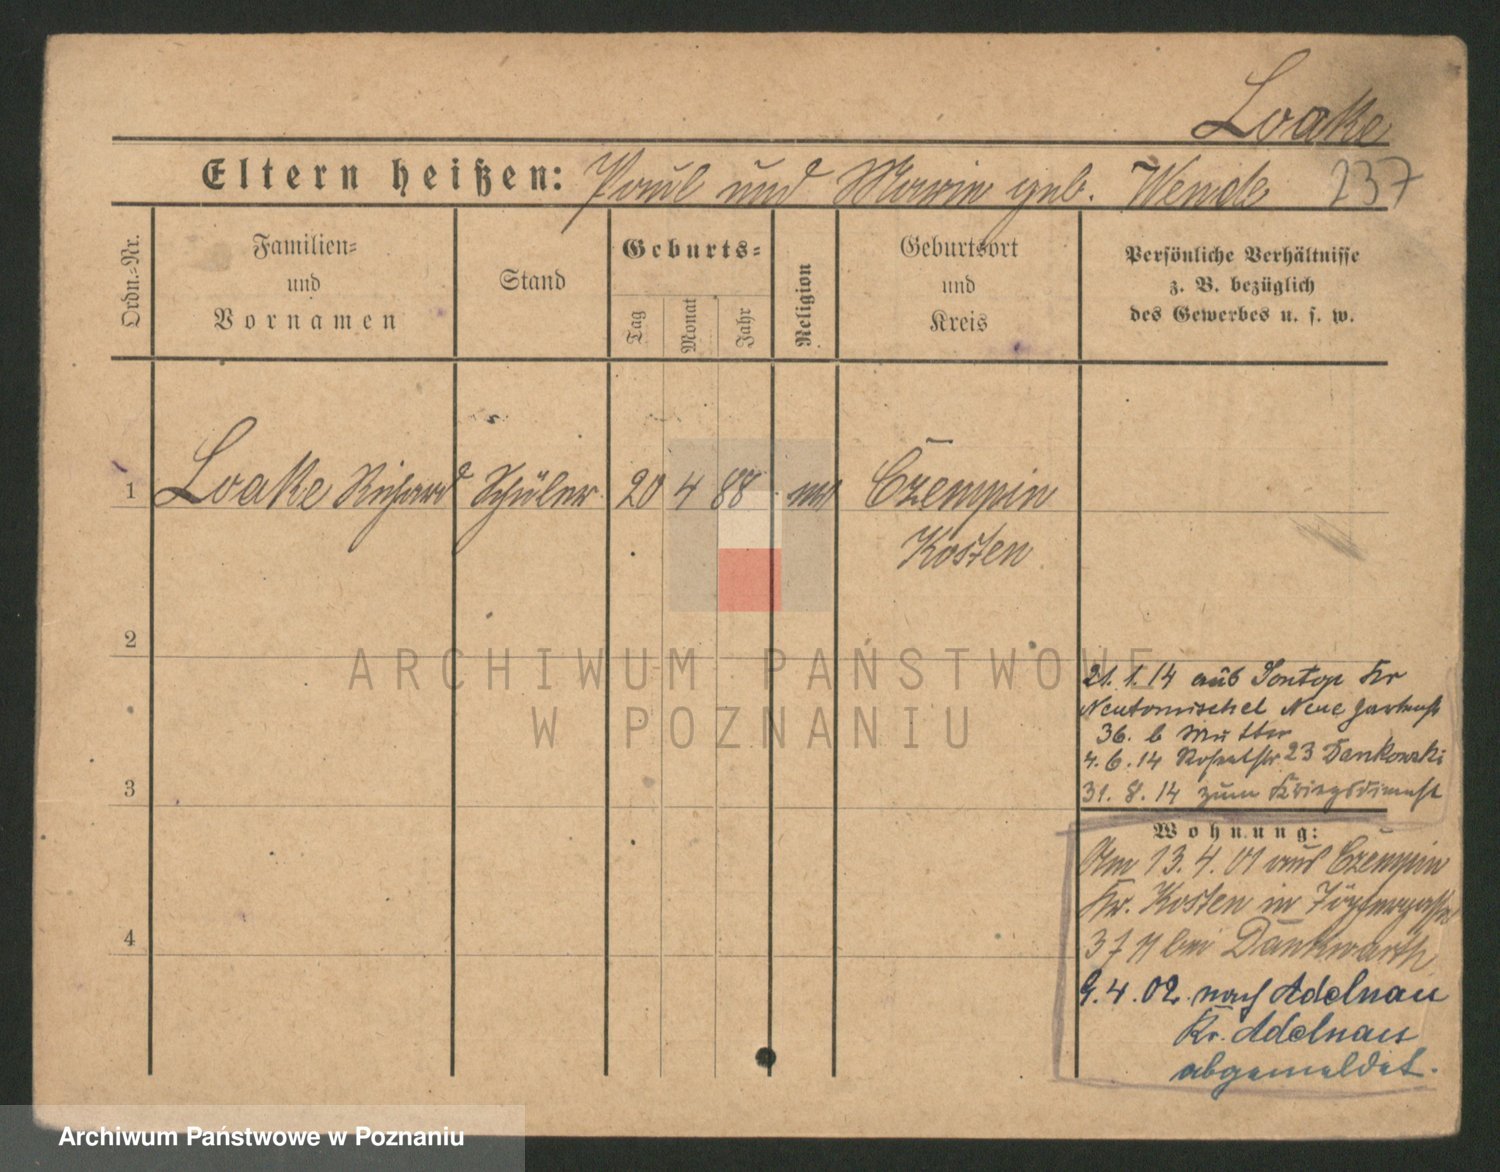 Loake
Eltern heißen: Paul und Marie geb. Wende 237
Ordn.-Nr.
Familien-
und
Vornamen
Stand
Geburts-
Tag
Monat
Jahr
Religion
Geburtsort
und
Kreis
Persönliche Verhältnisse
z. B. bezüglich
des Gewerbes u. s. w.
1 Loake Richard Schüler 20 4 88 Czempin
Kosten
2
3
4
21. 1. 14 aus Sontop Kr
Neutomischel Neue Gartenst
36. b Mutter
4. 6. 14 23 Dankowski
31. 8. 14 zum Kriegsdienst
Wohnung:
Am 13. 4. 01 aus Czempin
Kr. Kosten in Töpfergasse
37 II bei Dankwarth
9. 4. 02. nach Adelnau
Kr. Adelnau
abgemeldet.
ARCHIWUM PAŃSTWOWE
W POZNANIU
Archiwum Państwowe w Poznaniu